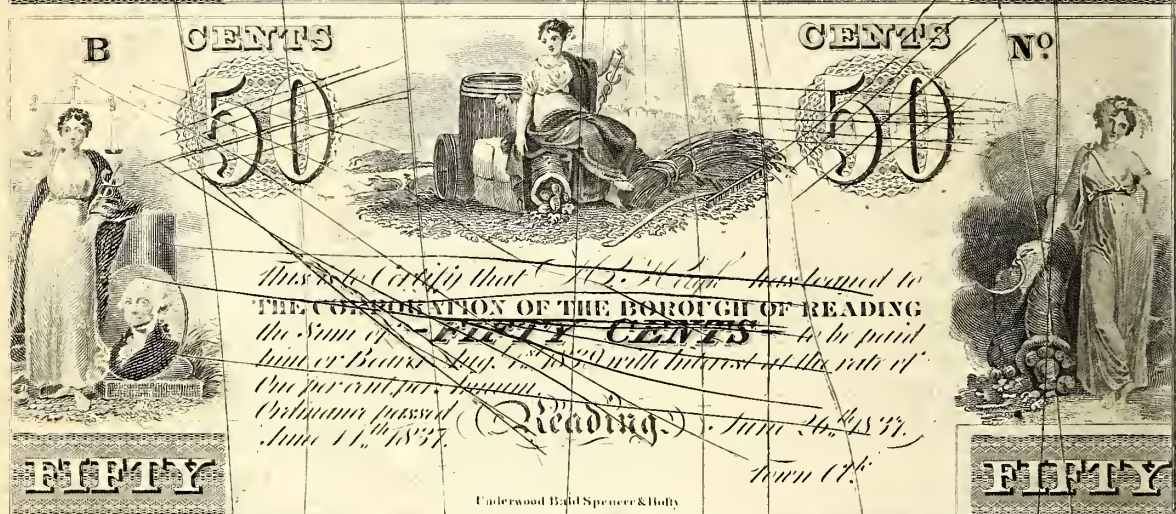 B CENTS CENTS No
50 50
This is to Certify that has loaned to
THE CORPORATION OF THE BOROUGH OF READING
the Sum of FIFTY CENTS to be paid
him or Bearer Aug. 1st 1839 with Interest at the rate of
One per cent per annum
Ordinance passed Reading. June 26th 1837.
June 14th 1837.
Town Clk
FIFTY FIFTY
Underwood Bald Spencer & Hufty